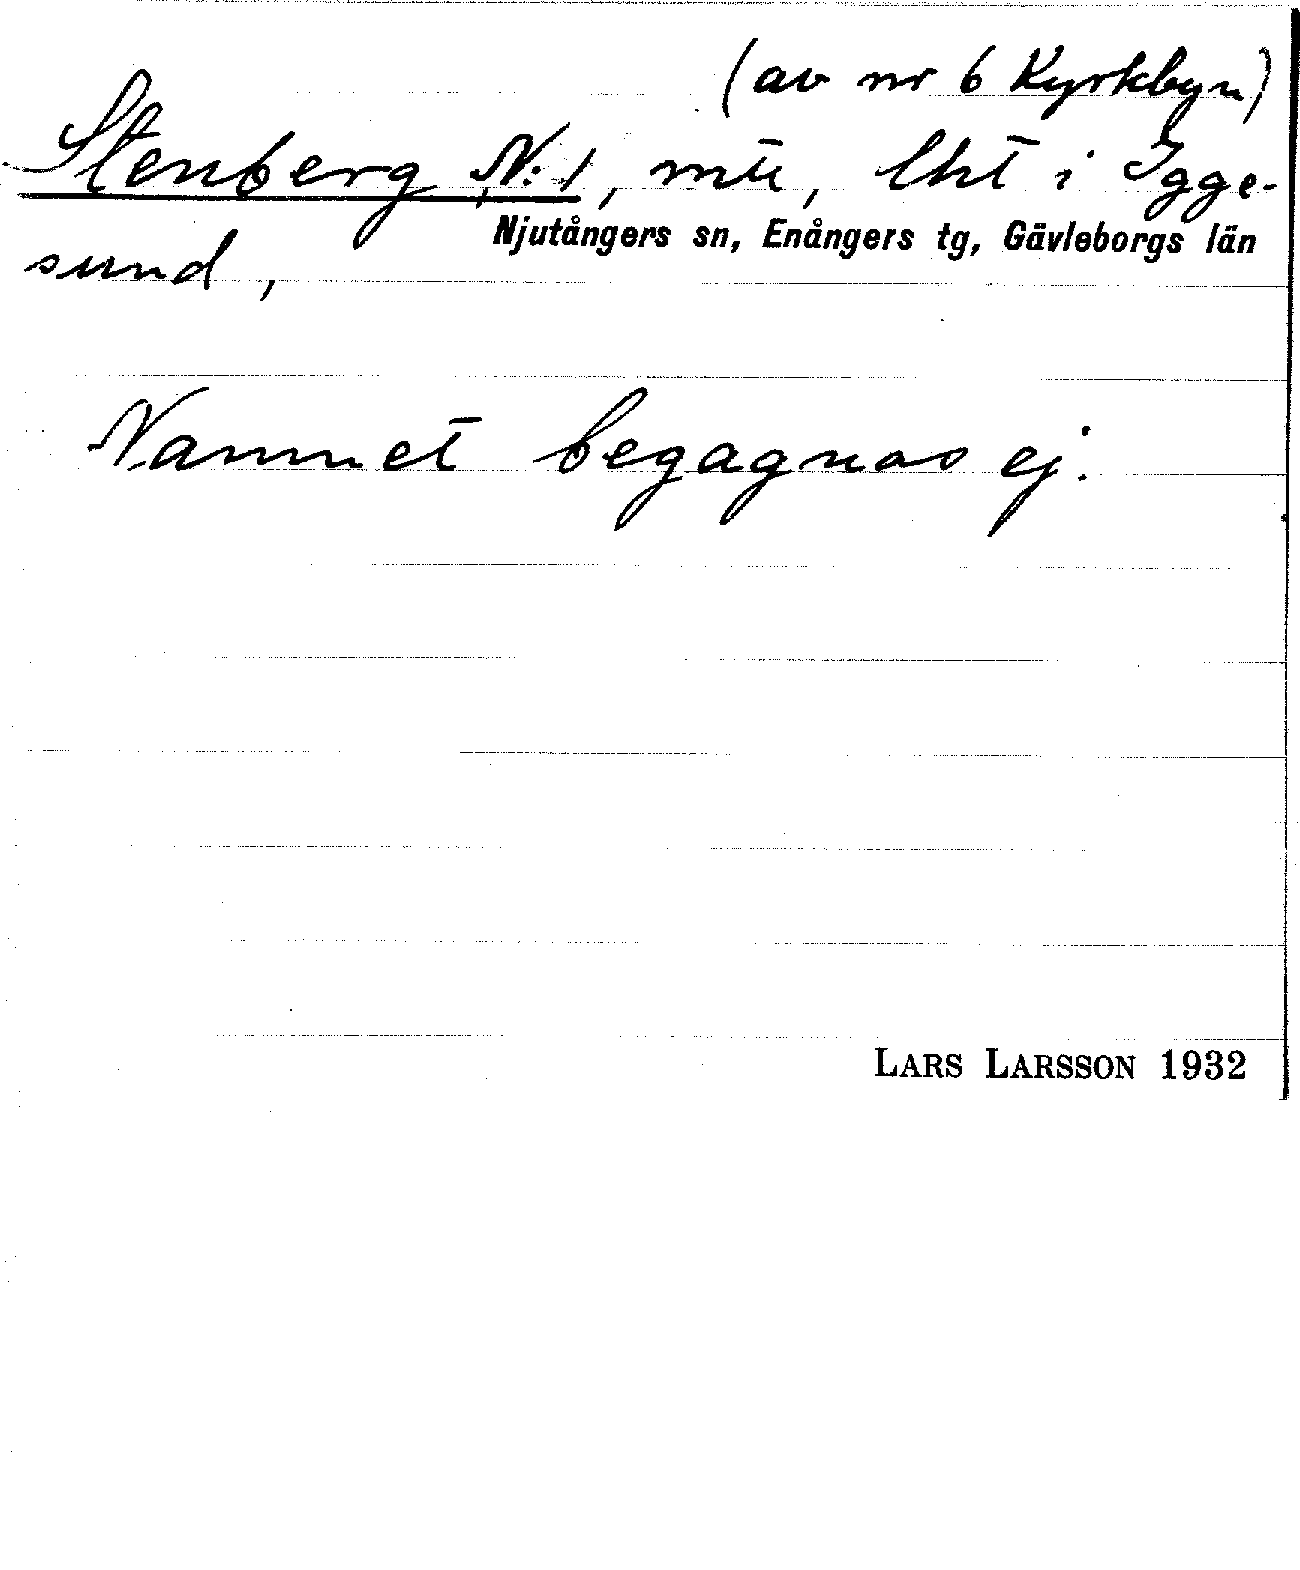 (av nr 6 Kyrkbyn)
Stenberg N:1, mtl, lht i Igge-
Njutångers sn, Enångers tg, Gävleborgs län
sund,
Namnet begagnas ej.
LARS LARSSON 1932